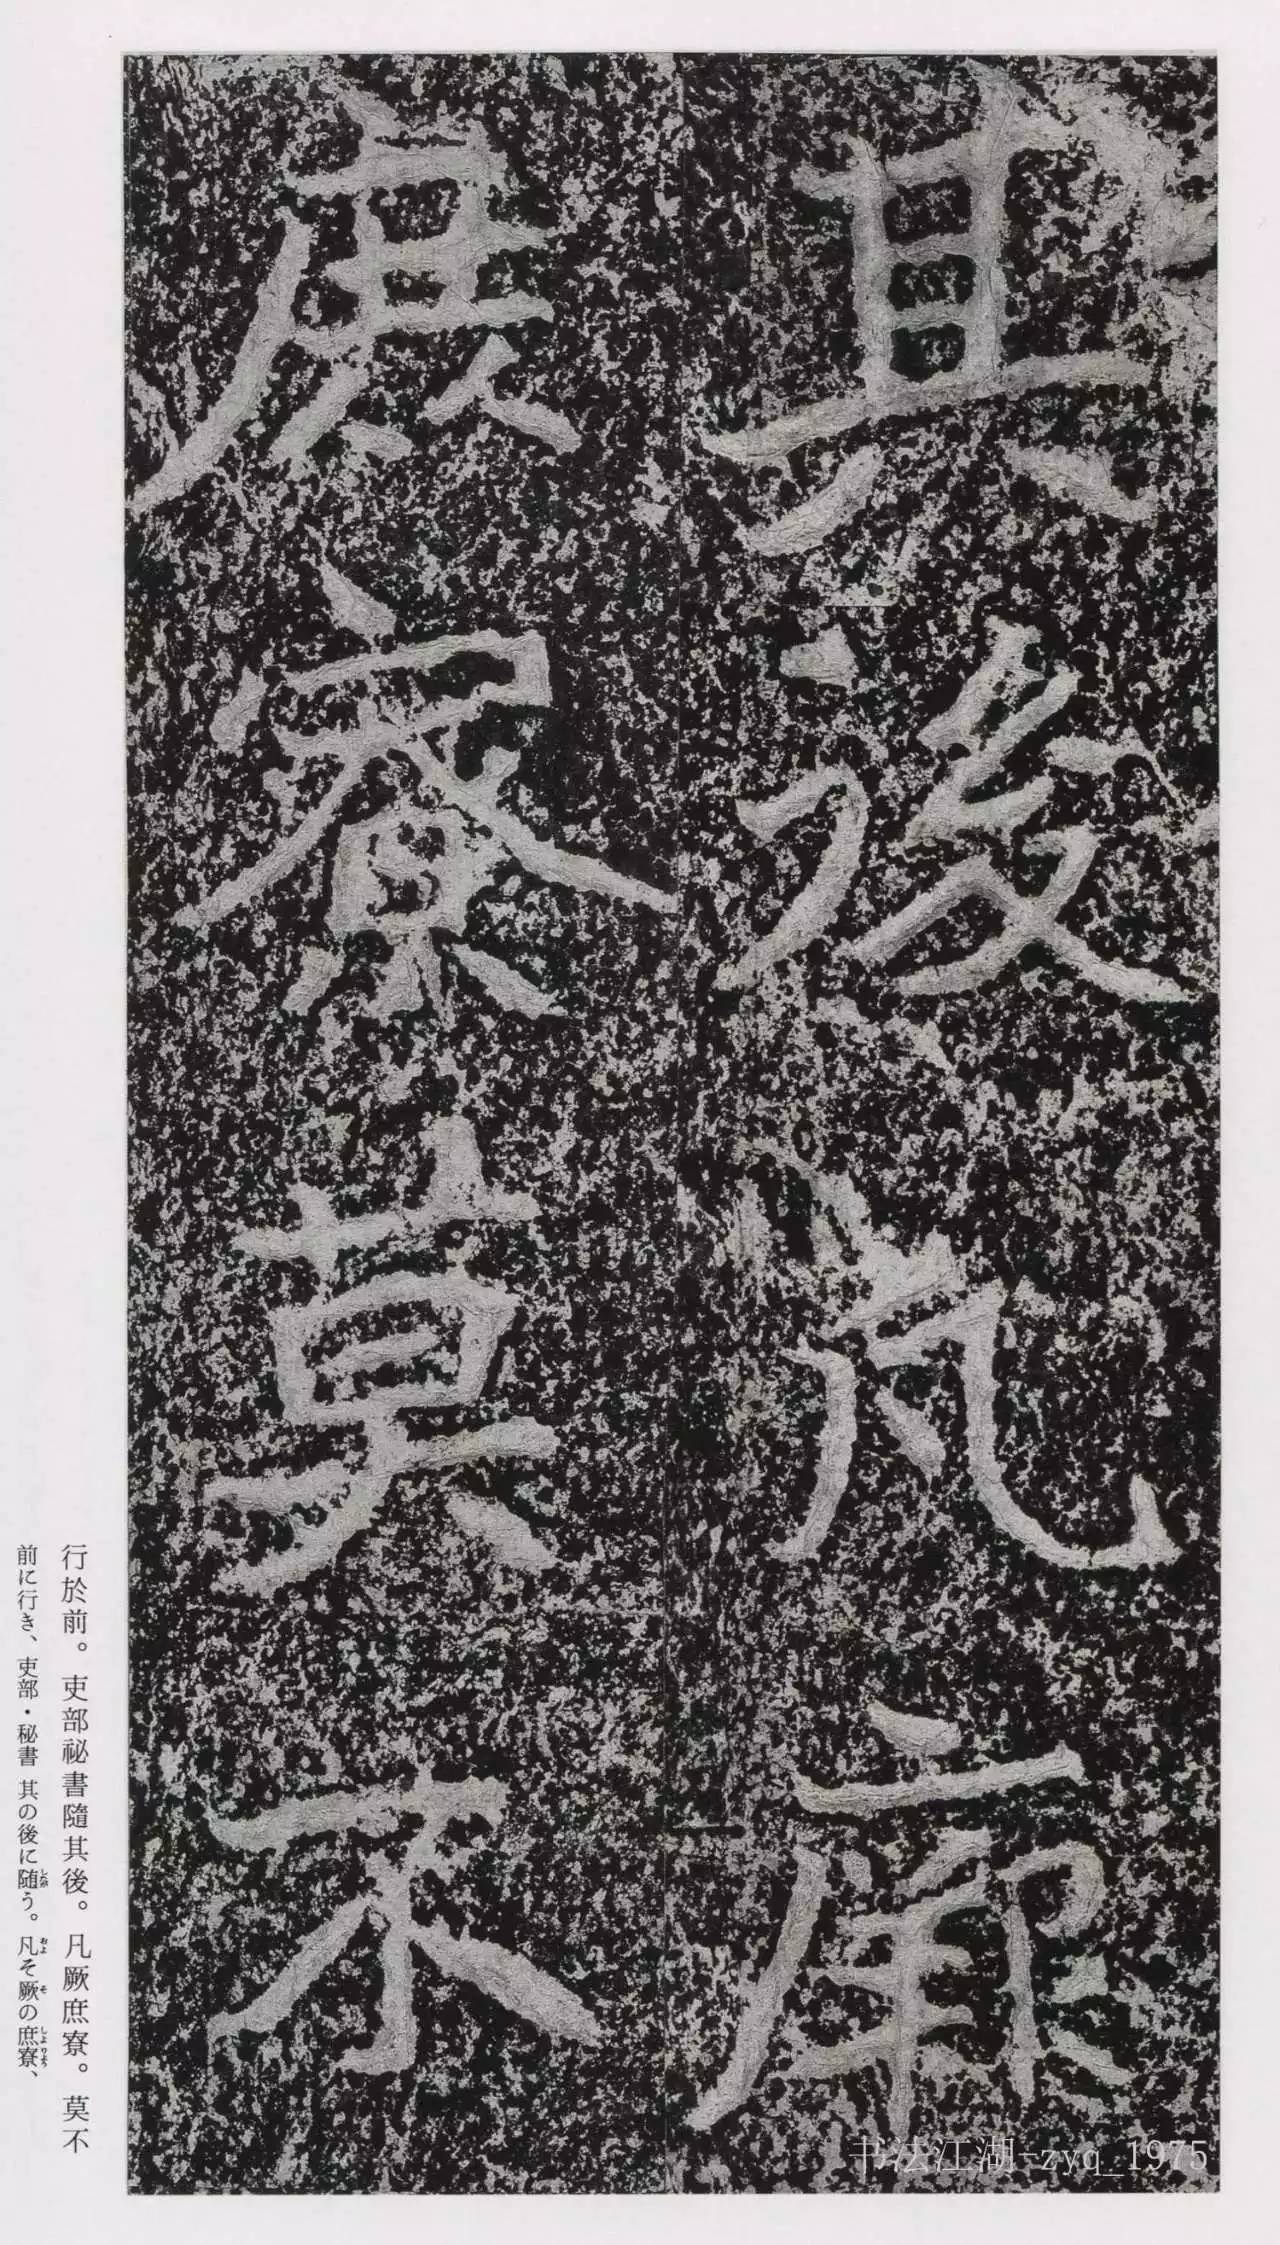 其後凡厥
庶寮莫不
行於前。吏部祕書隨其後。凡厥庶寮。莫不
前に行き、吏部・秘書 其の後に随う。凡そ厥の庶寮、
したが
およ
そ
しよりよう
书法江湖-zyq_1975